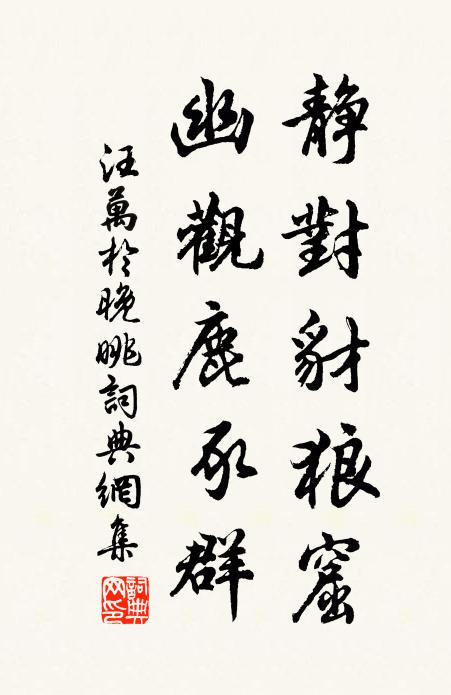 靜對豺狼窟
幽觀鹿豕群
汪萬於晚眺詞典網集
詞典网印